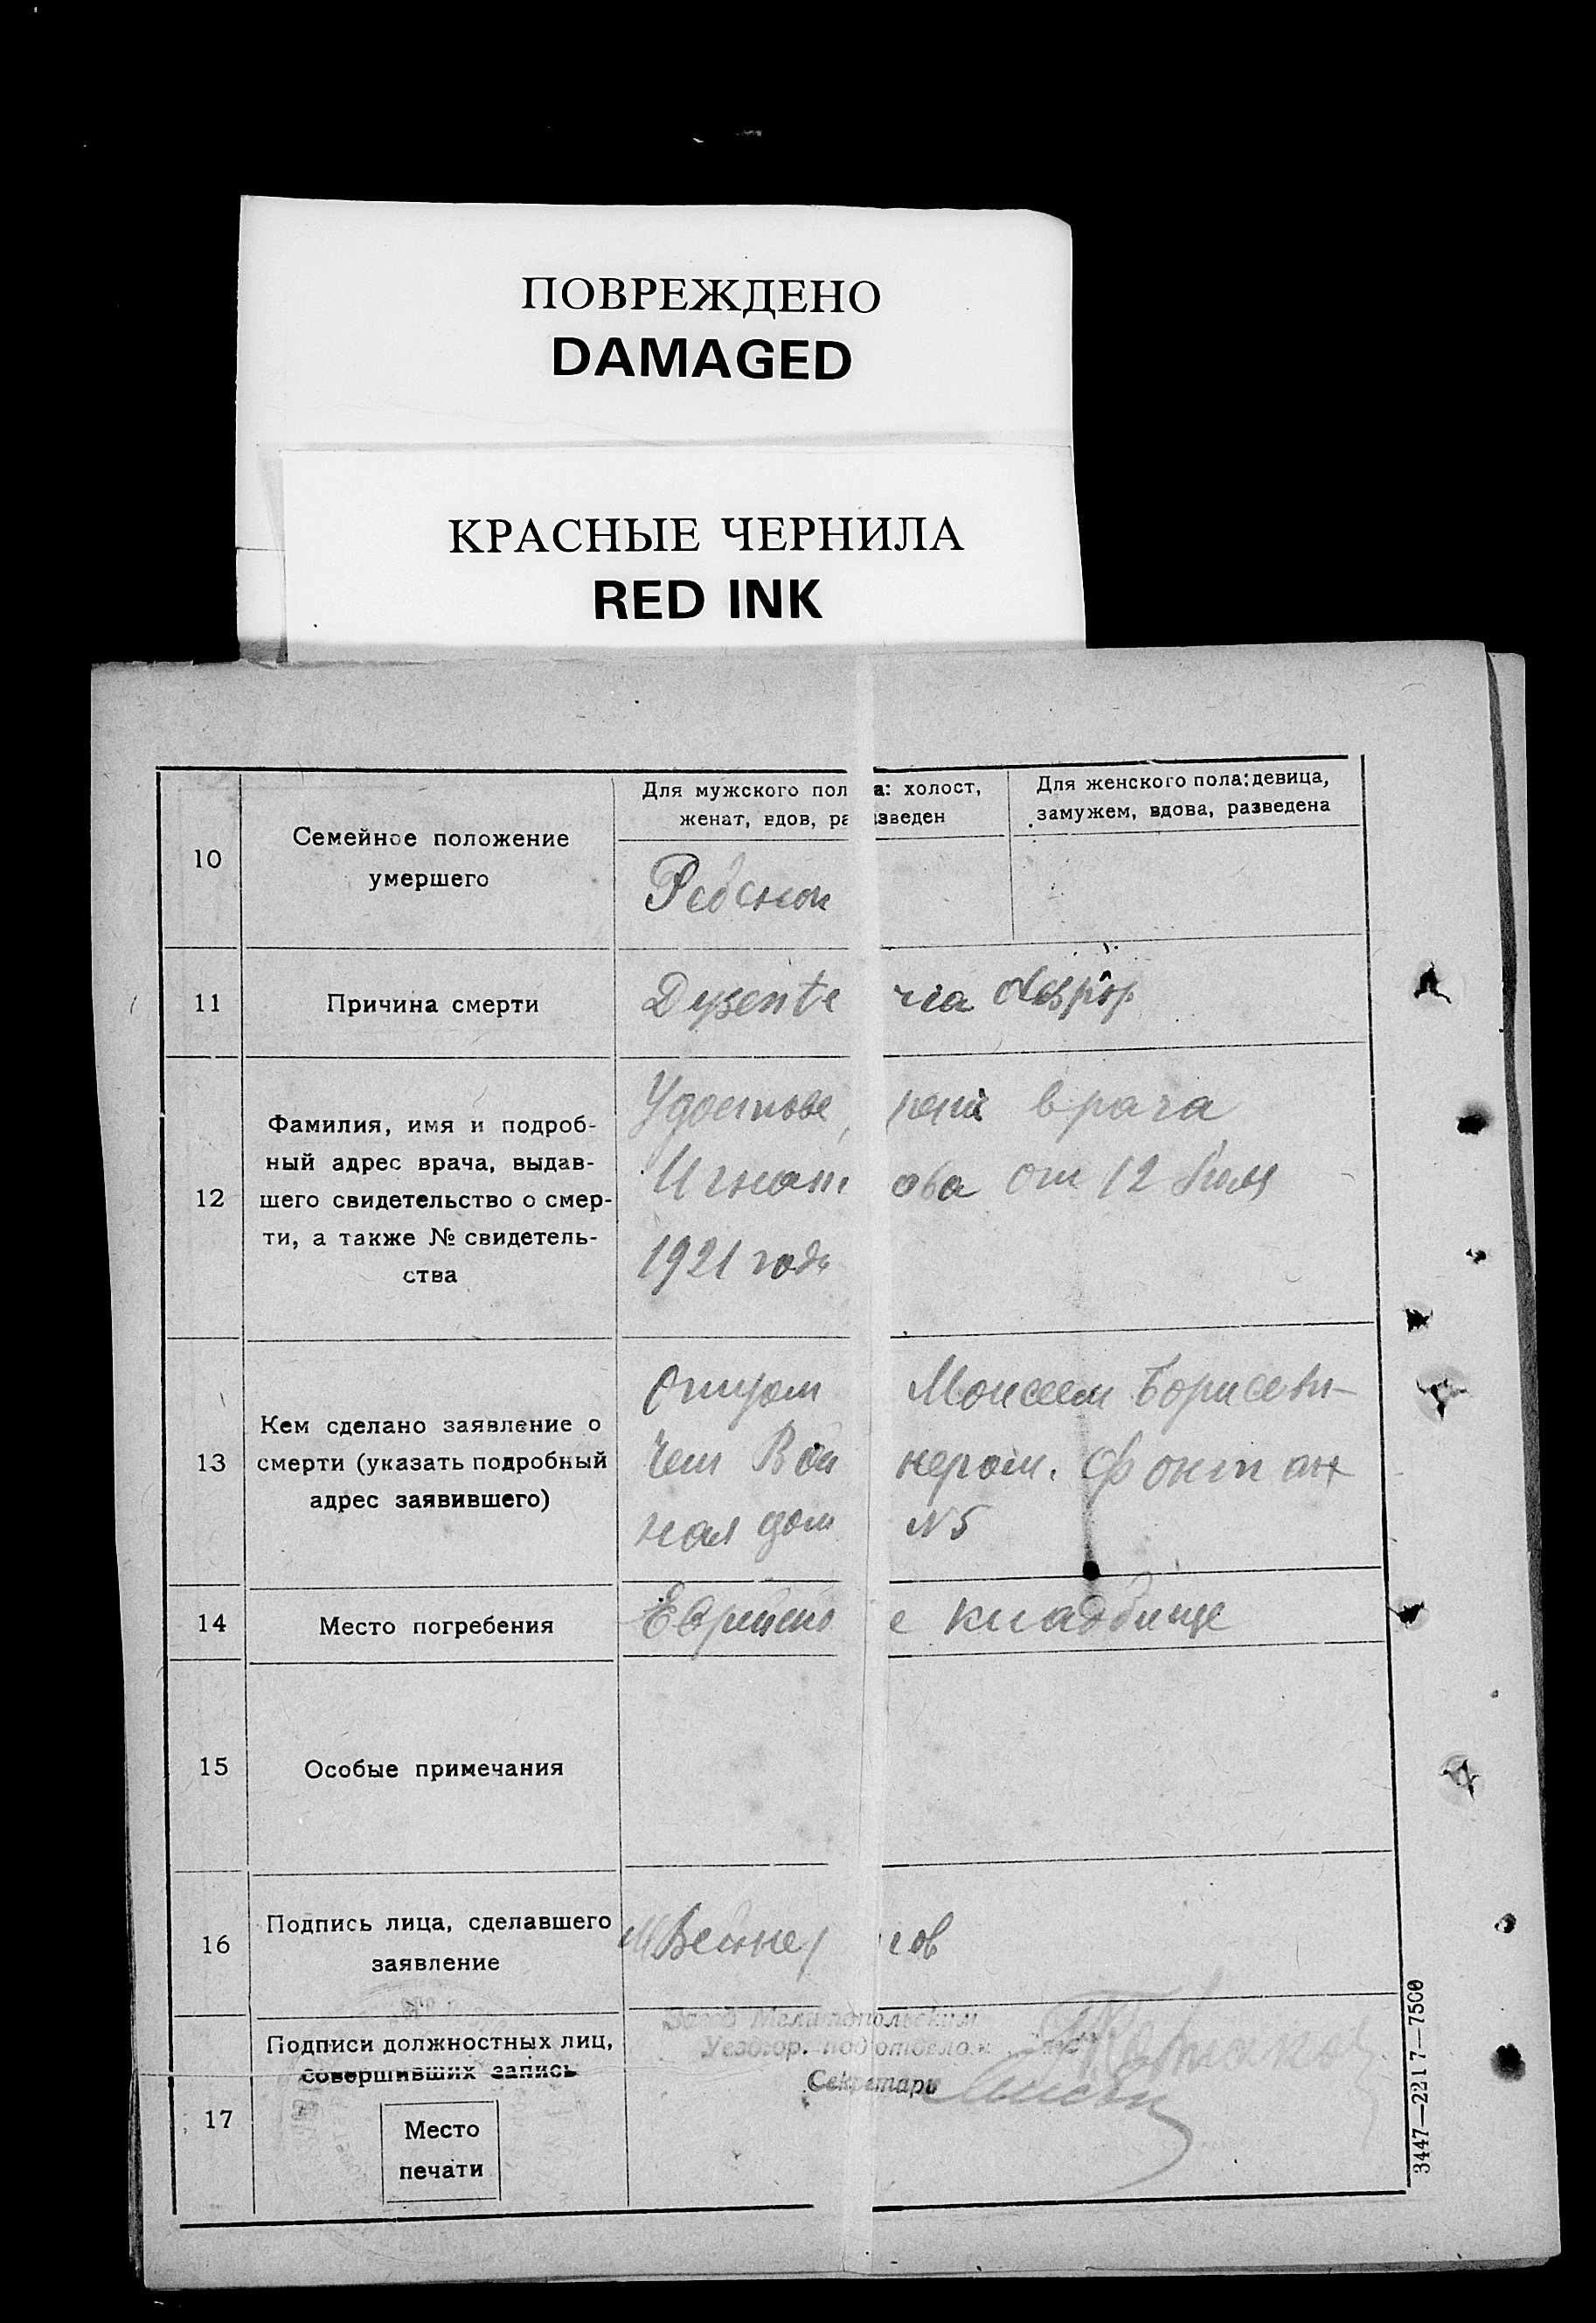 ПОВРЕЖДЕНО
DAMAGED
КРАСНЫЕ ЧЕРНИЛА
RED INK
10
Семейное положение
умершего
Для мужского пола: холост,
женат, вдов, разведен
Для женского пола: девица,
замужем, вдова, разведена
Ребенок
11
Причина смерти
Dysenteria
12
Фамилия, имя и подроб-
ный адрес врача, выдав-
шего свидетельство о смер-
ти, а также № свидетель-
ства
Удостоверение врача
Игнатова от 12
1921 года
13
Кем сделано заявление о
смерти (указать подробный
адрес заявившего)
Отцом Моисеем Борисеви-
чем Вайнером. Фонтан
ная дом N 5
14
Место погребения
Еврейское кладбище
15
Особые примечания
16
Подпись лица, сделавшего
заявление
17
Подписи должностных лиц,
совершивших запись
Место
печати
Мелитопольским
Уездгор. подотделом
Секретарь
3447—2217—7500